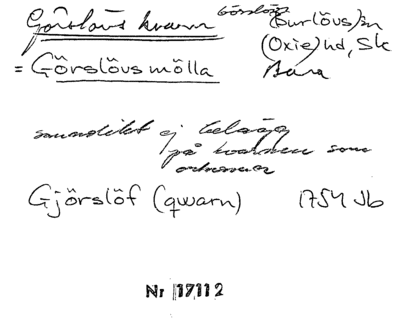 Görslövs kvarn Görslöv (Burlövs) sn
(Oxie) hd, Sk
= Görslövs mölla Bara
ej belägg
på kvarnen som
ortnamn
Gjörslöf (qwarn) 1754 Jb
Nr 17112